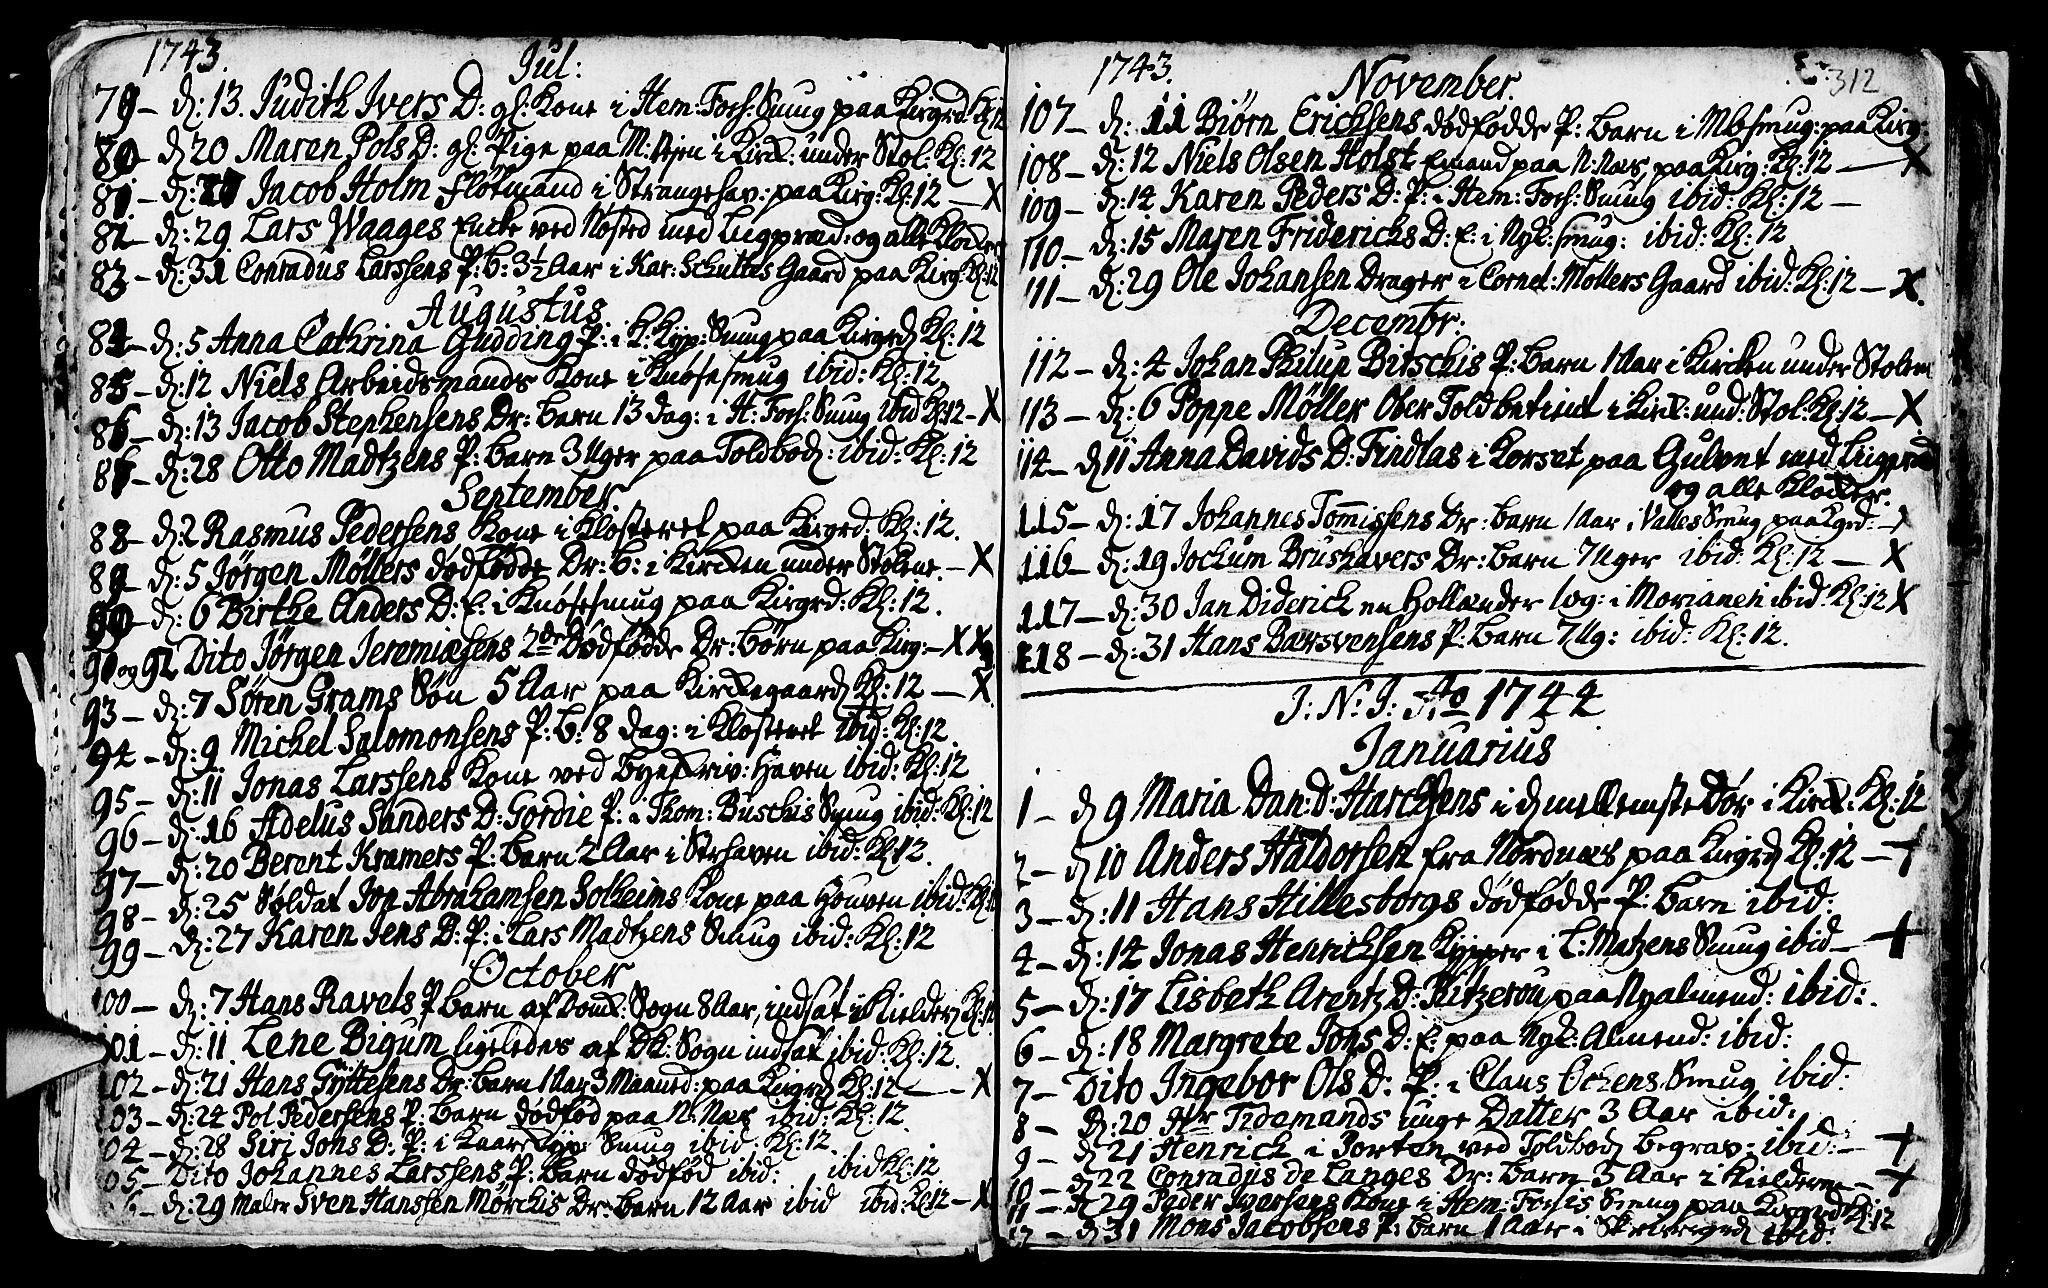 1743.
Jul:
79 – d: 13. Judith Ivers D: gl: Kone i Hem: Fos: Smug paa Kirgrd. Kl: 12
80 – d 20 Maren Pols D: gl: Pige paa M: Vejen i Kirck: under Stol: Kl: 12
81 – d: 27 Jacob Holm Fløtmand i Strangehav: paa Kirg: Kl: 12 — X
82 – d: 29. Lars Waages Encke ved Nøsted med Liigpræd: og alle Klocker
83 – d: 31 Conradus Larssens P: b: 3½ Aar i Kar: Schultes Gaard paa Kirg: Kl: 12
Augustus
84 – d: 5 Anna Cathrina Gudding P: i K: Kyp: Smug paa Kirgrd Kl: 12
85 – d: 12 Niels Arbeidsmands Kone i Knøsesmug ibid: Kl: 12
86 – d: 13 Jacob Stephensens Dr: Barn 13 dag: i H: Fos: Smug ibid Kl: 12 – X
87 – d: 28 Otto Madtzens P: Barn 3 Uger paa Toldbod: ibid: Kl: 12
September
88 – d: 2 Rasmus Pedersens Kone i Klosteret paa Kirgrd: Kl: 12.
89 – d: 5 Jørgen Møllers dødfødde Dr: b: i Kircken under Stolene. – X
90 – d: 6 Birthe Anders D: E: i Knøsesmug paa Kirgrd: Kl: 12.
91 og 92 Dito Jørgen Jeremiæsens 2de Dødfødde Dr: børn paa Kirg: – X X
93 – d: 7 Søren Grams Søn 5 Aar paa Kirckegaard Kl: 12 — X
94 – d: 9 Michel Salomonsens P: b: 8 dag: i Klosteret ibid: Kl: 12
95 – d: 11 Jonas Larssens Kone ved Byeskriv: Haven ibid: Kl: 12
96 – d: 16 Adelus Sanders D: Gordie P: i Thom: Buschis Smug ibid: Kl: 12
97 – d: 20 Berent Kramers P: Barn 2 Aar i Strhaven ibid: Kl: 12.
98 – d: 25 Soldat Jon Abrahamsen Solheims Kone paa Houven ibid: Kl: 12
99 – d: 27 Karen Jens D: P: i Lars Madtzens Smug ibid: Kl: 12
October
100 – d: 7 Hans Ravels P. Barn af Domk: Sogn 8 Aar, indsat i Kielder Kl: 12
101 – d: 11. Lene Bigum ligeledes af DK: Sogn indsat ibid: Kl: 12.
102 – d: 21 Hans Gyttesens Dr: Barn 1 Aar 3 Maaned: paa Kirgrd Kl: 12 — X
103 – d: 24 Pol Pedersens P: Barn dødfød paa N: Næs ibid: Kl: 12.
104 – d: 28 Siri Johs D: P: i Smug ibid: Kl: 12.
105 – Dito Johannes Larssens P: Barn dødfød ibid: ibid Kl: 12
– d: 29 Maler Sven Hanssen Mørchs Dr: Barn 12 Aar ibid ibid: Kl: 12 – X
1743.
312
November.
107 – d: 11 Biørn Erichsens dødfødde P: Barn i Mbsmug: paa Kirg:
108 – d: 12 Niels Olsen Holst Emand paa N: Næs, paa Kirg: Kl: 12 — X
109 – d: 14 Karen Peders D: P: i Hem: Fos: Smug ibid: Kl: 12 –
110 – d: 15 Maren Friderichs D: E: i Nyk: smug: ibid: Kl: 12
111 – d: 29 Ole Johansen Drager i Cornel: Møllers Gaard ibid: Kl: 12 – X.
Decembr:
112 – d: 4 Johan Philip Bitschis P: Barn 1 Aar i Kircken under Stolen
113 – d: 6 Poppe Møller Ober Toldbetient i Kirck: und: Stol: Kl: 12 – X
114 – d 11 Anna Davids D: Findlas i Korset paa Gulvet med Liigpræd
og alle Klocker.
115 – d: 17 Johannes Tommissens Dr: Barn 1 Aar i Valles Smug paa Kgrd: – X
116 – d: 19 Jochum Brushavers Dr: Barn 7 Uger ibid: Kl: 12 — X
117 – d: 30 Jan Diderick en Hollænder log: i Morianen ibid: Kl: 12 X
118 – d: 31 Hans Barsvensens P: Barn 7 Ug: ibid: Kl: 12.
J: N: J: Ao 1744
Januarius
1 – d 9 Maria Dan: D: Harchsens i d mellemste Dør i Kirck: Kl: 12
2 – d 10 Anders Haldorsen fra Nordnæs paa Kirgrd Kl: 12 – +
3 – d: 11 Hans Hillesborgs dødfødde P: Barn ibid:
4 – d: 14 Jonas Henrichsen Kypper i L: Matzens Smug ibid – +
5 – d: 17 Lisbeth Arentz D: Kitzerou paa Nyalmend: ibid:
6 – d: 18 Margrete Jons D: E: paa Nyk: Almend: ibid:
7 – Dito Ingebor Ols D: P: i Claus Ochens Smug ibid:
8 – d: 20 Hr Tidemands unge Datter 3 Aar ibid:
9 – d 21 Henrick i Porten ved Toldbod Begrav: ibid: – +
10 – d 22 Conradus de Langes Dr: Barn 3 Aar i Kielderen – +
11 – d 29 Peder Iversens Kone i Hem: Fosis Smug paa Kirgrd Kl: 12
12 – d 31 Mons Jacobsens P: Barn 1 Aar i ibid: